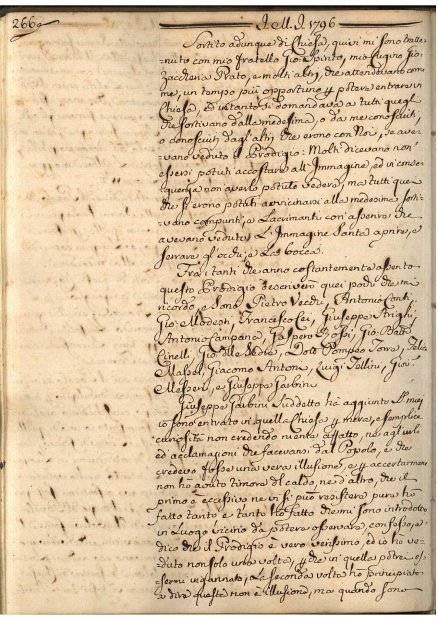 266
I.M.I. 1796
Sortito adunque di Chiesa, quivi mi sono tratte-
nuto con mio fratello Gio: Spinto, mio Cugino Gio:
Zaccheria Prato, e molti altri, che attendevano com
me, un tempo più opportuno p potere entrare in
Chiesa, ed intanto si domandava a tutti quegl
che sortivano dalla medesima, o da me conosciuti,
o conosciuti dagl'altri che erono con Noi, se ave-
vano veduto il Prodigio: Molti dicevano non
essersi potuti accostare all'Immagine, ed in conse-
quenza non averlo potuto vedere, ma tutti quei
che si erono potuti avvicinarsi alla medesima sorti-
vano compunti, e Lacrimanti con asserire che
avevano veduto L'Immagine Santa aprire, e
serrare gl'occhi, e La bocca.
Tra i tanti che anno costantemente assento
questo Prodigio descriverò quei pochi che mi
ricordo, e sono Pietro Vecchi, Antonio Conti,
Gio: Modesti, Francesco Cei, Giuseppe Arrighi,
Antonio Campana, Gaspero Rossi, Gio: Batta
Cinelli, Gio: delle Vedre, Dott. Pompeo Torre, Felice
Massei, Giacomo Antoni, Luigi Tellini, Giov:
Massoni, e Giuseppe Garbini
Giuseppe Garbini Suddetto hà aggiunto Il mej
io sono entrato in quella Chiesa p mera, e semplice
curiosità non credendo niente affatto, ne agl'urli
ed acclamazioni che facevansi dal Popolo, e che
credevo fosse una vera illusione, e p accertarmene
non hò avuto timore del caldo, ne d'altro, che il
primo è eccessivo ne in si può resistere, pure hò
fatto tanto e tanto hò fatto che mi sono introdotto
in Luogo vicino da potere osservare, confesso, e
dico che il Prodigio è vero verissimo, ed io hò ve-
duto non solo una volta, p che in quella potrei es-
sermi ingannato, La seconda volta hò principiato
a dire questa non è illusione, ma quando sono